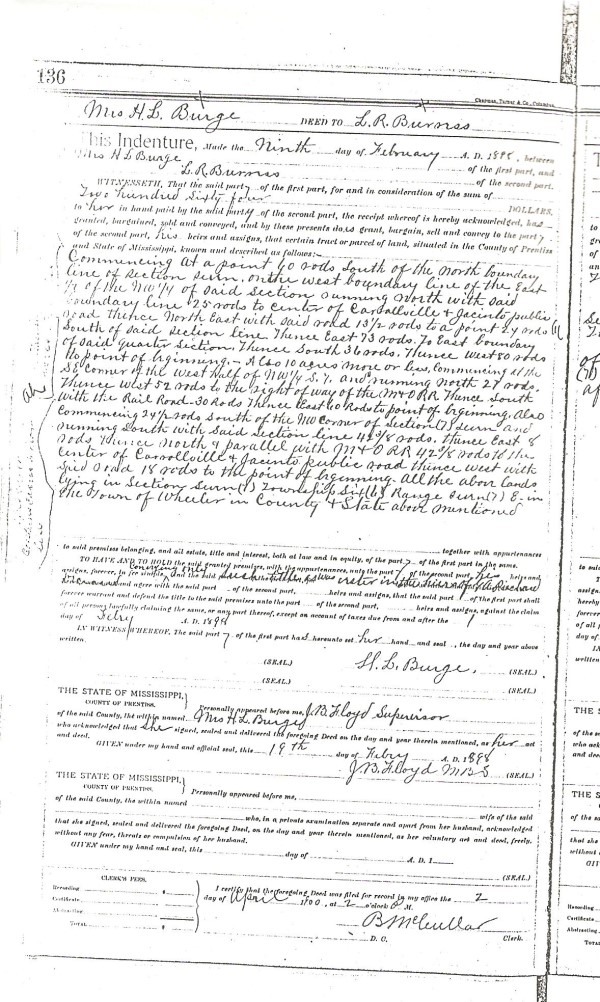 136
Chapman, Tarner & Co., Columbus.
Mrs H. L. Burge DEED TO L. R. Burness
This Indenture, Made the Ninth day of February A. D. 1898, between
Mrs H L Burge of the first part, and
L. R. Burness of the second part.
WITNESSETH, That the said party of the first part, for and in consideration of the sum of
Two hundred Sixty four DOLLARS,
to her in hand paid by the said party of the second part, the receipt whereof is hereby acknowledged, has
granted, bargained, sold and conveyed, and by these presents do grant, bargain, sell and convey to the party
of the second part, his heirs and assigns, that certain tract or parcel of land, situated in the County of Prentiss
and State of Mississippi, known and described as follows:
Commencing at a point 60 rods South of the North boundary
line of Section Seven. on the west boundary line of the East
1/2 of the NW 1/4 of said Section running North with said
boundary line 25 rods to center of Carrollville & Jacinto public
road thence North East with said road 13 1/2 rods to a point 24 rods
South of said Section line Thence East 73 rods. To East boundary
of said quarter Section, Thence South 36 rods. Thence west 80 rods
to point of beginning. - Also 10 acres more or less, Commencing at the
SE Corner of the West Half of NW 1/4 S. 7, and running North 27 rods.
Thence west 52 rods to the right of way of the M & O RR Thence South
with the Rail Road - 30 Rods Thence East 60 Rods to point of beginning. Also
Commencing 24 1/2 rods South of the NW Corner of Section (7) Seven and
running South with said Section line 42 5/8 rods. thence East 8
rods thence North & parallel with M & O RR 42 5/8 rods to the
center of Carrollville & Jacinto public road thence west with
said road 18 rods to the point of beginning. All the above lands
lying in Section Seven (7) Township Six (6) Range Seven (7) E- in
the Town of Wheeler in County & State above mentioned
together with appurtenances
to said premises belonging, and all estate, title and interest, both at law and in equity, of the party of the first part in the same.
TO HAVE AND TO HOLD the said granted premises, with the appurtenances, unto the party of the second part, heirs and
assigns, forever, in fee simple, and the said
and agree with the said part of the second part, heirs and assigns, that the said part of the first part shall
forever warrant and defend the title to the said premises unto the part of the second part, heirs and assigns, against the claim
of all persons lawfully claiming the same, or any part thereof, except on account of taxes due from and after the
day of Feby A. D. 1898
IN WITNESS WHEREOF, The said party of the first part has hereunto set her hand and seal, the day and year above
written.
(SEAL.) H. L. Burge. (SEAL.)
(SEAL.) (SEAL.)
THE STATE OF MISSISSIPPI,
COUNTY OF PRENTISS. Personally appeared before me, J. B. Floyd Supervisor
of the said County, the within named Mrs H. L. Burge
who acknowledged that she signed, sealed and delivered the foregoing Deed on the day and year therein mentioned, as her act
and deed.
GIVEN under my hand and official seal, this 19th day of Feby A. D. 1898
J. B. Floyd M B S (SEAL)
THE STATE OF MISSISSIPPI,
COUNTY OF PRENTISS. Personally appeared before me,
of the said County, the within named wife of the said
who, in a private examination separate and apart from her husband, acknowledged
that she signed, sealed and delivered the foregoing Deed, on the day and year therein mentioned, as her voluntary act and deed, freely,
without any fear, threats or compulsion of her husband.
GIVEN under my hand and seal, this day of A. D. 1
(SEAL)
CLERK'S FEES.
Recording $
Certificate
Abstracting
TOTAL, $
I certify that the foregoing Deed was filed for record in my office the 2
day of April 1900, at 2 o'clock P. M.
B McCullar
D. C. Clerk.